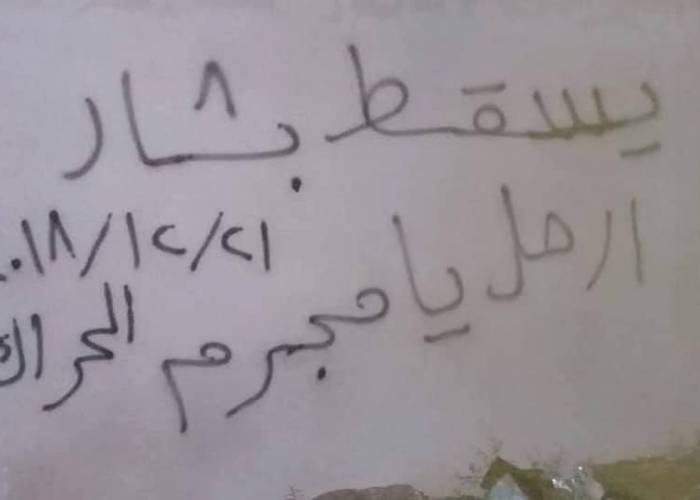 يسقط بشار
ارحل يا مجرم
٠١٨/١٢/٢١
الحراك